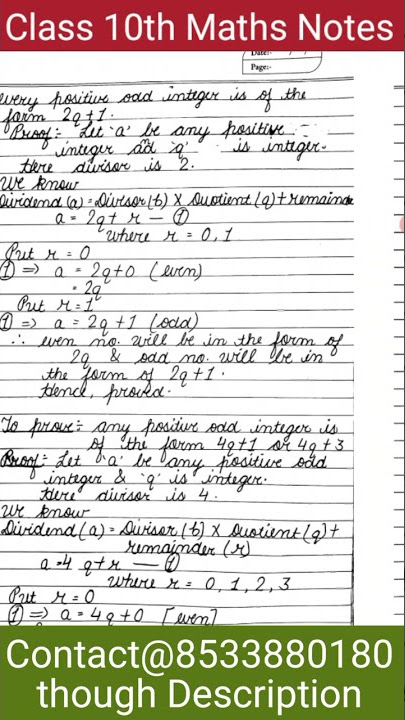 Class 10th Maths Notes
Date:- / /
Page:-
every positive odd integer is of the
form 2q+1.
Proof:- Let 'a' be any positive
integer ad 'q' is integer.
Here divisor is 2.
We know
Dividend(a)=Divisor(b) X Quotient(q)+remainde
a = 2q+ r — ①
where r = 0,1
Put r = 0
① ⇒ a = 2q+0 (even)
= 2q
Put r=1
① ⇒ a = 2q+1 (odd)
∴ even no. will be in the form of
2q & odd no. will be in
the form of 2q+1.
Hence, proved.
To prove:- any positive odd integer is
of the form 4q+1 or 4q+3
Proof:- Let 'a' be any positive odd
integer & 'q' is integer.
Here divisor is 4.
We know
Dividend(a) = Divisor(b) X Quotient(q)+
remainder(r)
a=4 q+r — ①
where r = 0, 1, 2, 3
Put r = 0
① ⇒ a = 4q+0 [even]
Contact@8533880180
though Description